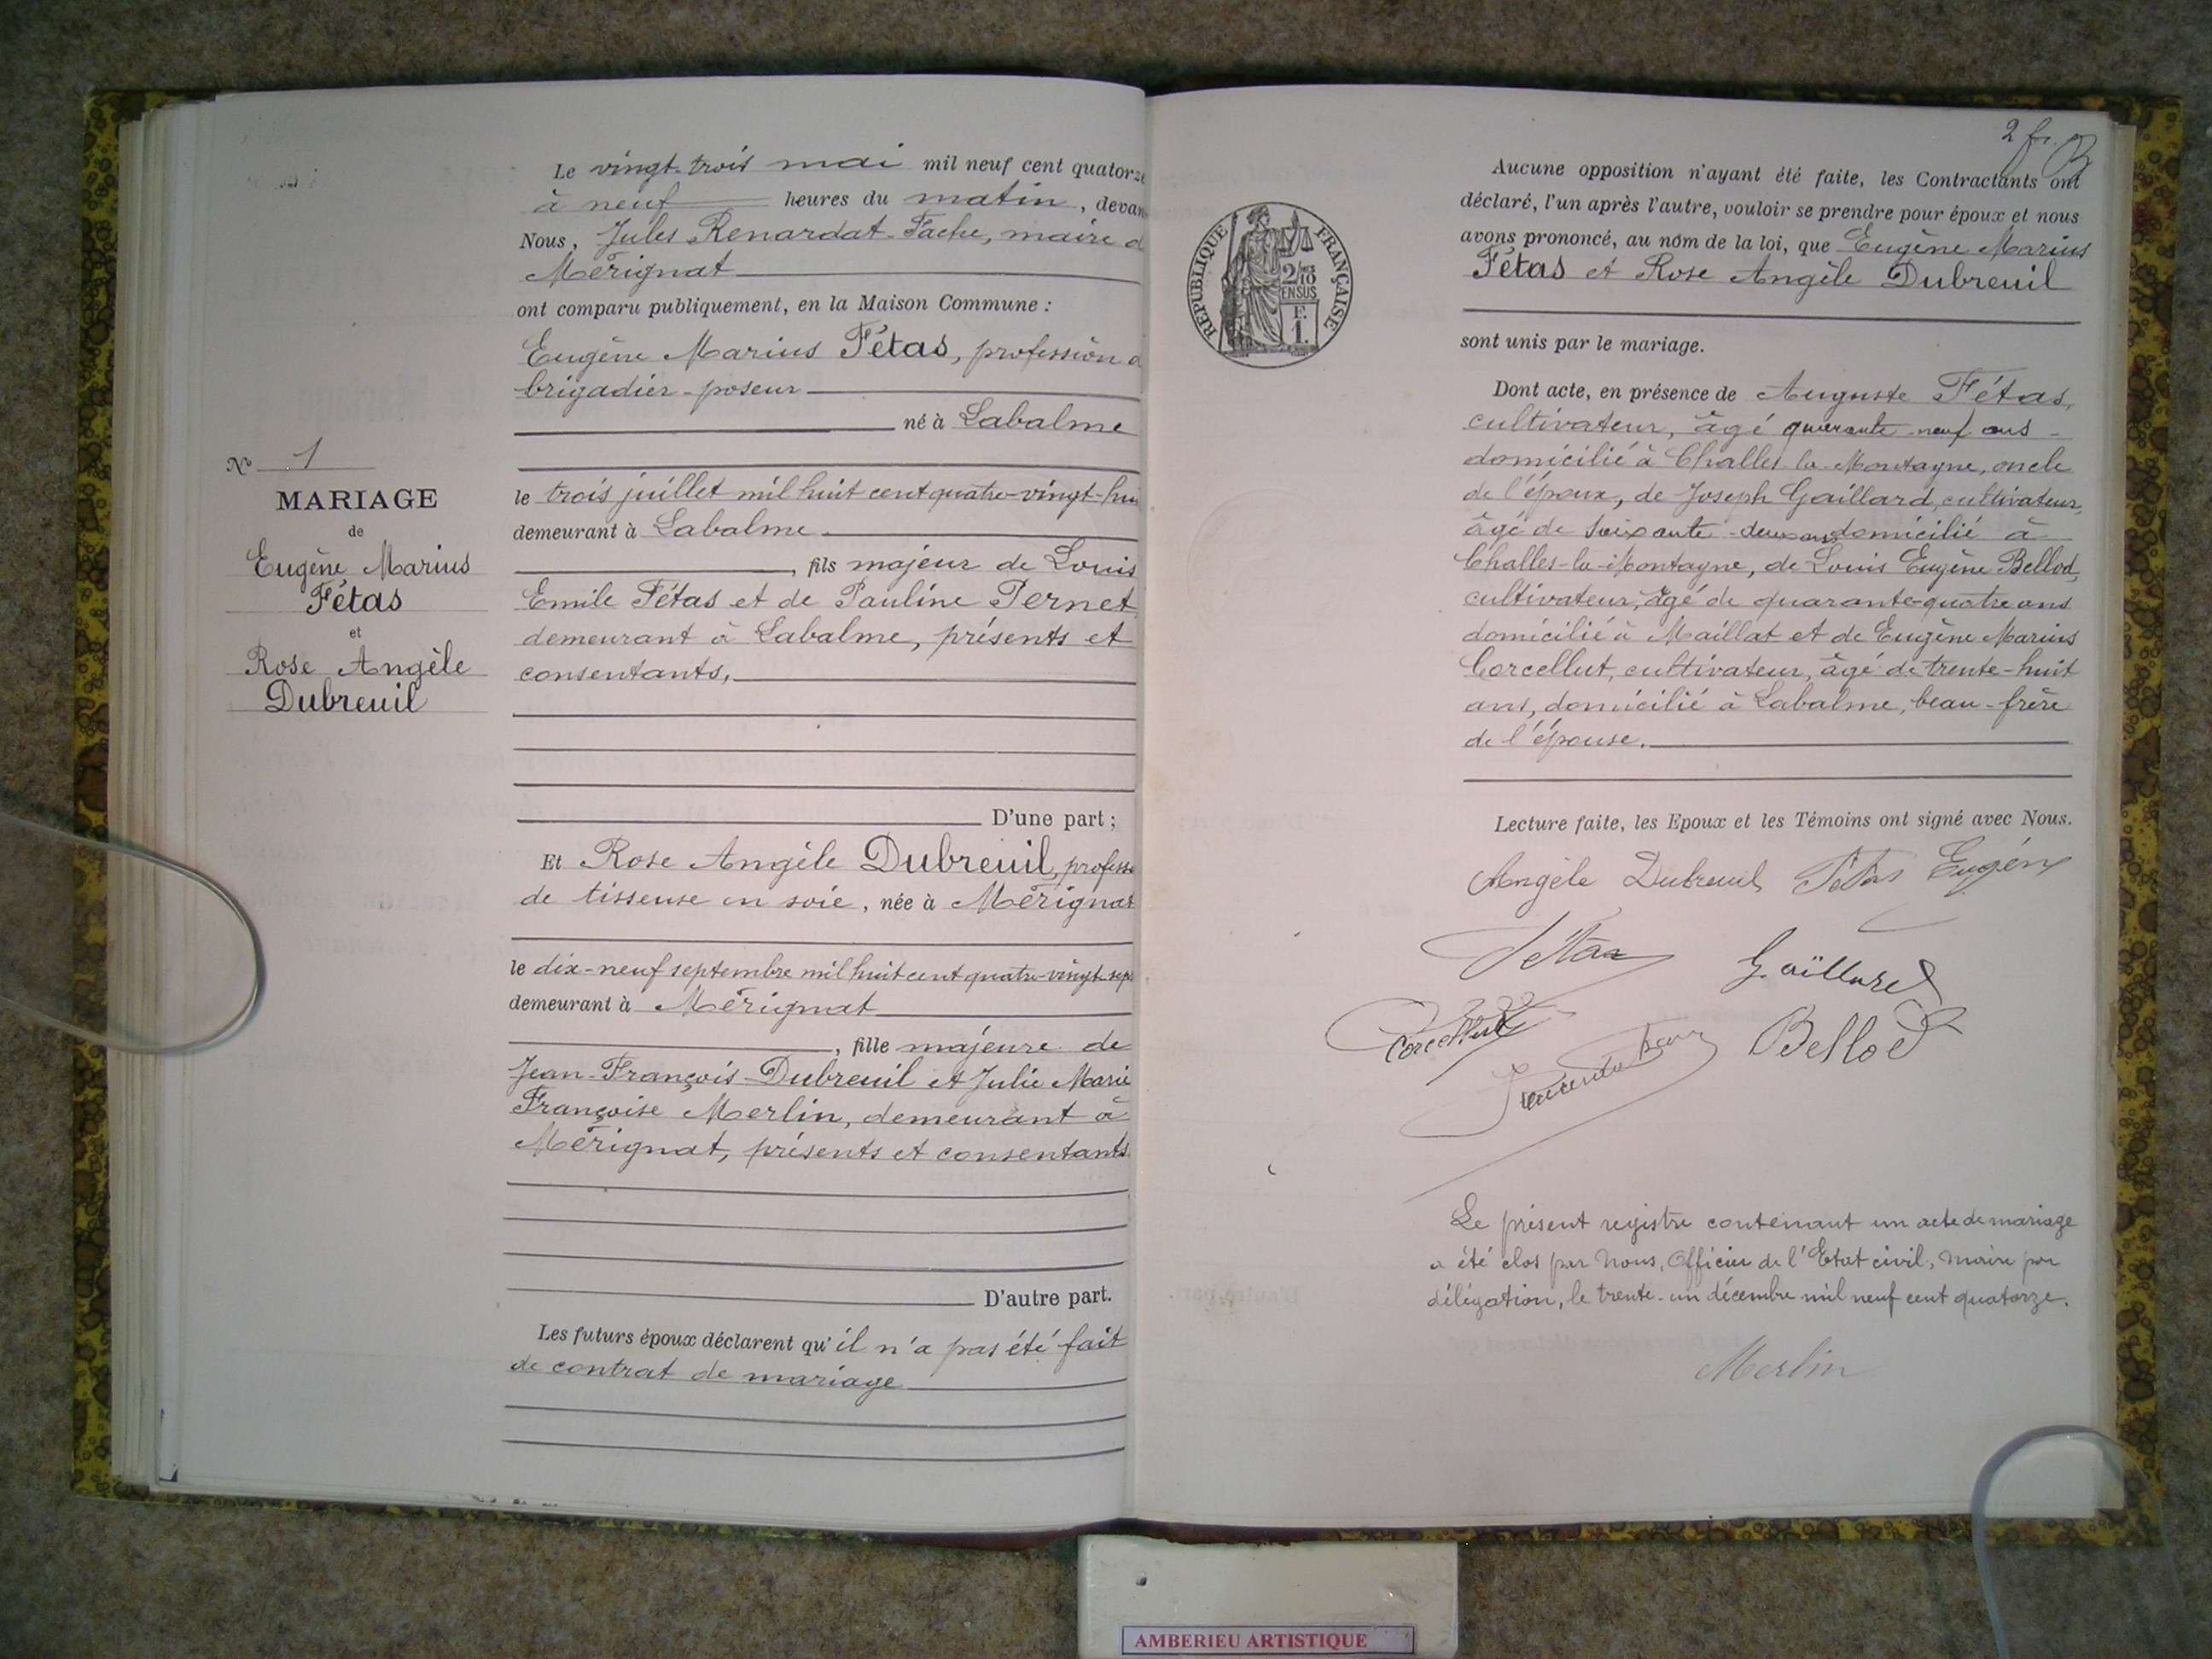 Le vingt-trois mai mil neuf cent quatorze
à neuf heures du matin, devan
Nous, Jules Renardat-Fache, maire d
Mérignat
ont comparu publiquement, en la Maison Commune :
Eugène Marius Fétas, profession d
brigadier-poseur
né à Labalme
le trois juillet mil huit cent quatre-vingt-hui
demeurant à Labalme
, fils majeur de Louis
Emile Fétas et de Pauline Pernet
demeurant à Labalme, présents et
consentants,
D'une part ;
Et Rose Angèle Dubreuil, profess
de tisseuse en soie, née à Mérignat
le dix-neuf septembre mil huit cent quatre-vingt-sep
demeurant à Mérignat
, fille majeure de
Jean-François Dubreuil et Julie Marie
Françoise Merlin, demeurant à
Mérignat, présents et consentants
D'autre part.
Les futurs époux déclarent qu'il n'a pas été fait
de contrat de mariage
N° 1
MARIAGE
de
Eugène Marius
Fétas
et
Rose Angèle
Dubreuil
2 fr.
RÉPUBLIQUE FRANÇAISE
2/10
EN SUS
F.
1.
Aucune opposition n'ayant été faite, les Contractants ont
déclaré, l'un après l'autre, vouloir se prendre pour époux et nous
avons prononcé, au nom de la loi, que Eugène Marius
Fétas et Rose Angèle Dubreuil
sont unis par le mariage.
Dont acte, en présence de Auguste Fétas,
cultivateur, âgé quarante-neuf ans
domicilié à Challes-la-Montagne, oncle
de l'époux, de Joseph Gaillard, cultivateur,
âgé de soixante-deux ans domicilié à
Challes-la-Montagne, de Louis Eugène Bellod,
cultivateur, âgé de quarante-quatre ans
domicilié à Maillat et de Eugène Marius
Corcellut, cultivateur, âgé de trente-huit
ans, domicilié à Labalme, beau-frère
de l'épouse.
Lecture faite, les Epoux et les Témoins ont signé avec Nous.
Angèle Dubreuil Fétas Eugène
Fétas Gaillard
Corcellut Bellod
Le présent registre contenant un acte de mariage
a été clos par Nous, Officier de l'Etat civil, maire par
délégation, le trente-un décembre mil neuf cent quatorze.
Merlin
AMBERIEU ARTISTIQUE